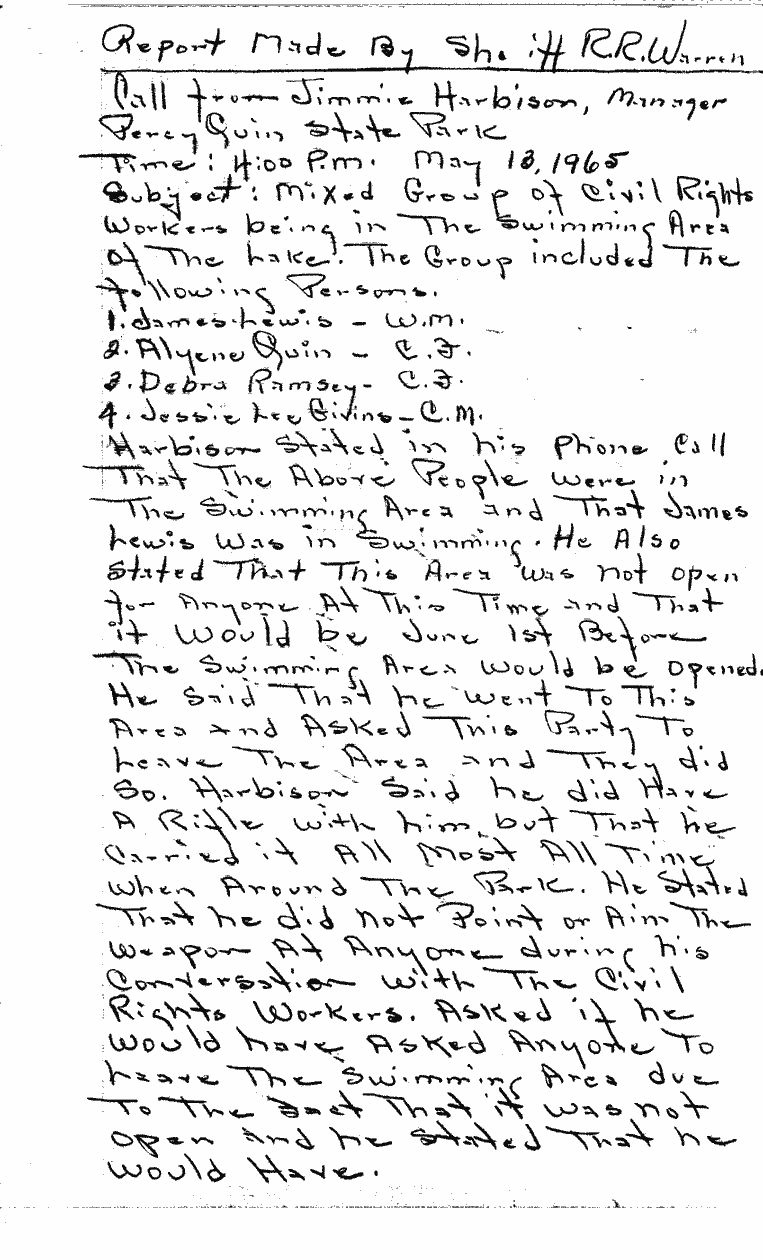 Report Made By Sheriff R.R. Warren
Call from Jimmie Harbison, Manager
Percy Quin State Park
Time: 4:00 P.m. May 13, 1965
Subject: Mixed Group of Civil Rights
Workers being in The Swimming Area
of The Lake. The Group included The
following Persons.
1. James Lewis - W.M.
2. Alyene Quin - C.F.
3. Debra Ramsey - C.F.
4. Jessie Lee Givins - C.M.
Harbison Stated in his Phone Call
That The Above People were in
The Swimming Area and That James
Lewis Was in Swimming. He Also
Stated That This Area was not open
for Anyone At This Time and That
it Would be June 1st Before
The Swimming Area would be opened.
He Said That he went To This
Area and Asked This Party To
Leave The Area and They did
So. Harbison Said he did Have
A Rifle with him but That he
Carried it All Most All Time
When Around The Park. He Stated
That he did not Point or Aim The
Weapon At Anyone during his
Conversation with The Civil
Rights Workers. Asked if he
Would have Asked Anyone To
Leave The Swimming Area due
To The Fact That it was not
open and he Stated That he
Would Have.